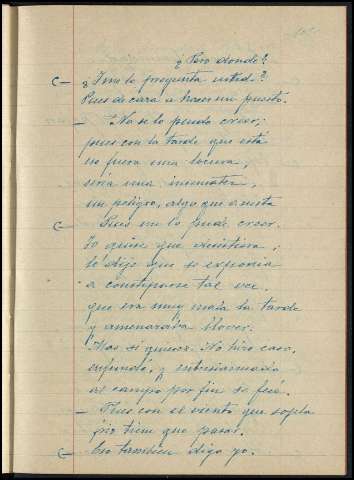 ¿Pero donde?
C— ¿Y me lo pregunta usted?
Pues de cara a hacer un puesto.
— No se lo puedo creer;
pues con la tarde que está
no fuera una locura,
sería una insensatez,
un peligro, algo que asusta
C— Pues me lo puede creer.
Yo quise que desistiera;
le dije que se exponía
a constiparse tal vez.
que era muy mala la tarde
y amenazaba llover.
Mas si quieres. No hizo caso,
enfundó, y
al campo por fin se fué.
— Pues con el viento que sopla
frío tiene que pasar.
C— Eso también digo yo.